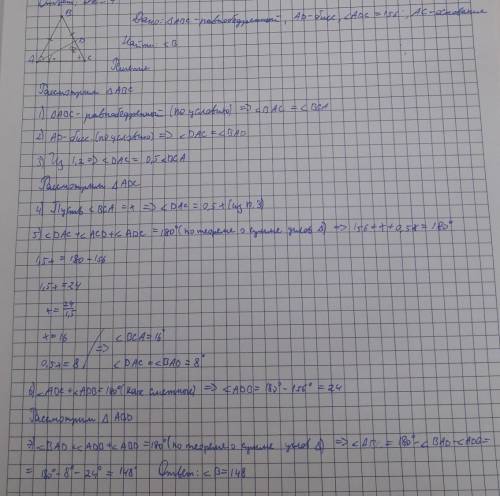 Дано: △ABC - равнобедренный, AD - бисс, ∠ADC = 156°, AC - основание
Найти: ∠B
Решение
Рассмотрим △ABC
1) △ABC - равнобедренный (по условию) => ∠BAC = ∠BCA
2) AD - бисс (по условию) => ∠DAC = ∠BAD
3) Из 1,2 => ∠DAC = 0,5∠BCA
Рассмотрим △ADC
4) Пусть ∠BCA = x => ∠DAC = 0,5x (из п.3)
5) ∠DAC + ∠ACD + ∠ADC = 180° (по теореме о сумме углов △) => 156 + x + 0,5x = 180°
1,5x = 180 - 156
1,5x = 24
x = 24/1,5
x = 16 => ∠BCA = 16°
0,5x = 8 ∠DAC = ∠BAD = 8°
6) ∠ADC + ∠ADB = 180° (как смежные) => ∠ADB = 180° - 156° = 24
Рассмотрим △ABD
7) ∠BAD + ∠ADB + ∠ABD = 180° (по теореме о сумме углов △) => = 180° - ∠BAD - ∠ADB =
= 180° - 8° - 24° = 148° Ответ: ∠B = 148